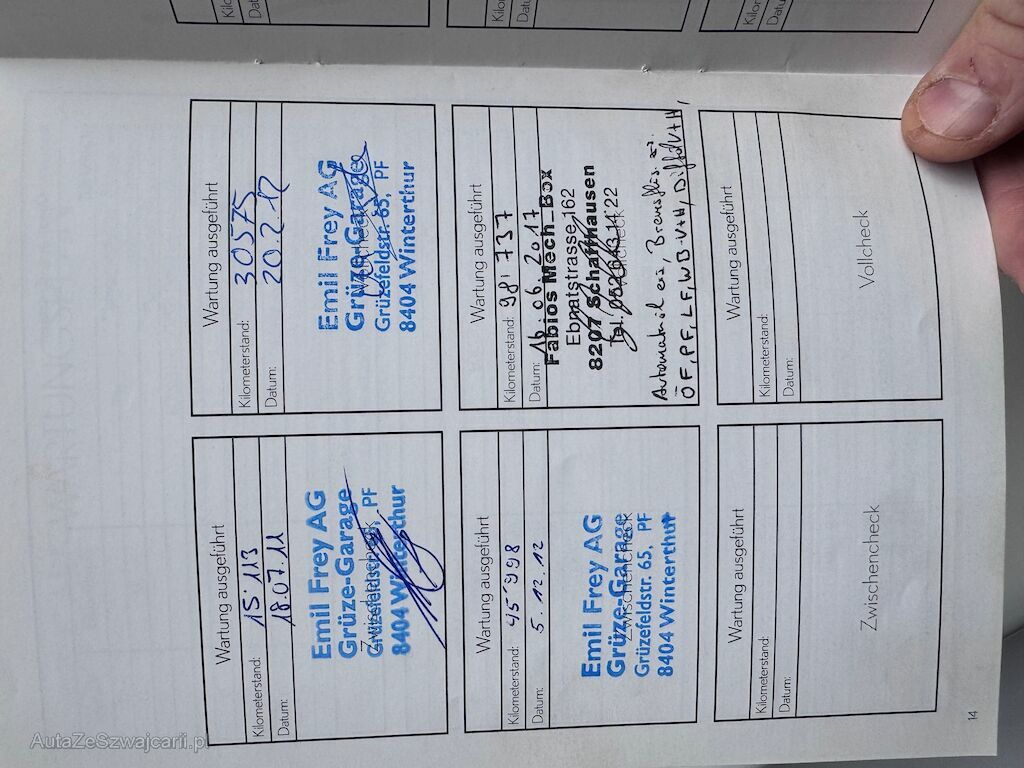 Wartung ausgeführt
Kilometerstand: 15'113
Datum: 18.07.11
Zwischencheck
Emil Frey AG
Grüze-Garage
Grüzefeldstr. 65, PF
8404 Winterthur
Wartung ausgeführt
Kilometerstand: 30575
Datum: 20.2.12
Vollcheck
Emil Frey AG
Grüze-Garage
Grüzefeldstr. 65, PF
8404 Winterthur
Wartung ausgeführt
Kilometerstand: 45'998
Datum: 5.12.12
Zwischencheck
Emil Frey AG
Grüze-Garage
Grüzefeldstr. 65, PF
8404 Winterthur
Wartung ausgeführt
Kilometerstand: 98'737
Datum: 16.06.2017
Fabios Mech_Box
Ebnatstrasse 162
8207 Schaffhausen
Vollcheck
Automatenöl ers, Bremsflüs. ers.
ÖF, PF, LF, WB-V+H, Diff.öl V+H,
Wartung ausgeführt
Kilometerstand:
Datum:
Zwischencheck
Wartung ausgeführt
Kilometerstand:
Datum:
Vollcheck
14
AutaZeSzwajcarii.pl